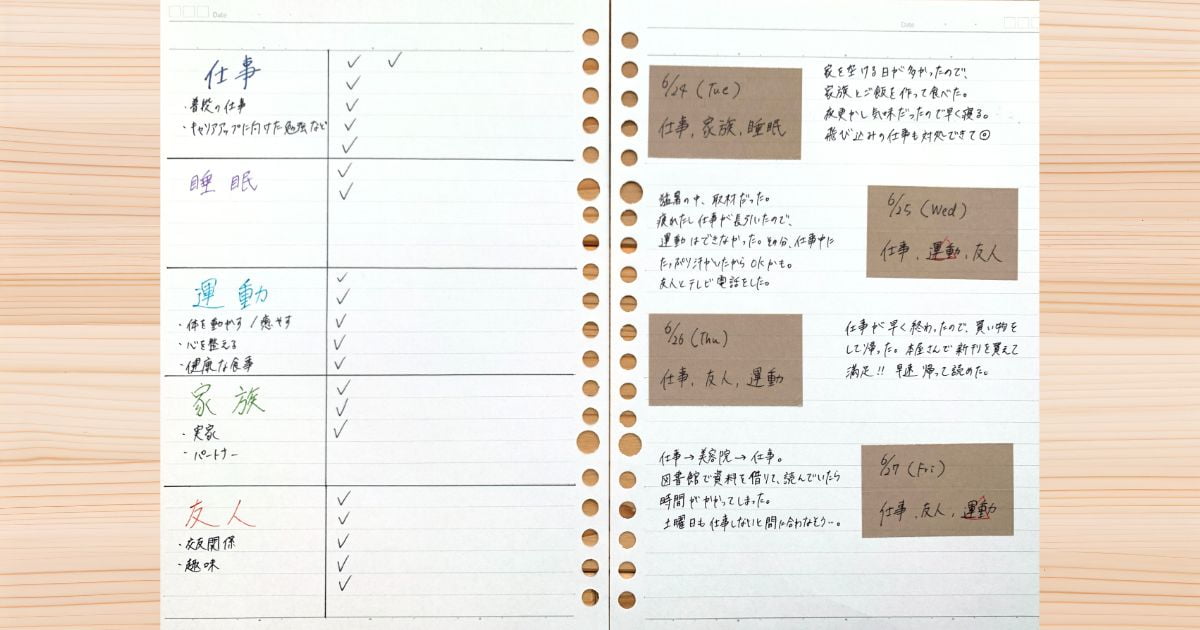 Date
仕事
・普段の仕事
・キャリアアップに向けた勉強など
睡眠
運動
・体を動かす/癒やす
・心を整える
・健康な食事
家族
・実家
・パートナー
友人
・交友関係
・趣味
Date
6/24(Tue)
仕事,家族,睡眠
家を空ける日が多かったので、
家族とご飯を作って食べた。
夜更かし気味だったので早く寝る。
飛び込みの仕事も対処できて◎
猛暑の中、取材だった。
疲れたし仕事が長引いたので、
運動はできなかった。その分、仕事中に
たっぷり汗かいたからOKかも。
友人とテレビ電話をした。
6/25(Wed)
仕事,運動,友人
6/26(Thu)
仕事,友人,運動
仕事が早く終わったので、買い物を
して帰った。本屋さんで新刊を買えて
満足!!早速帰って読めた。
仕事→美容院→仕事。
図書館で資料を借りて、読んでいたら
時間がかかってしまった。
土曜日も仕事しないと間に合わなそう…。
6/27(Fri)
仕事,友人,運動